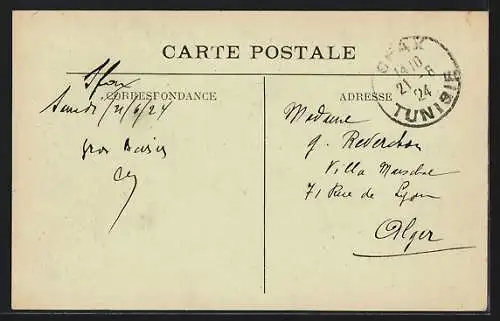 CARTE POSTALE
SFAX
14 10
21 -6
24
TUNISIE
CORRESPONDANCE
ADRESSE
Sfax
Samedi 21/6/24
gros Baisers
Madame
g. Reverchon
Villa
71 Rue de Lyon
Alger